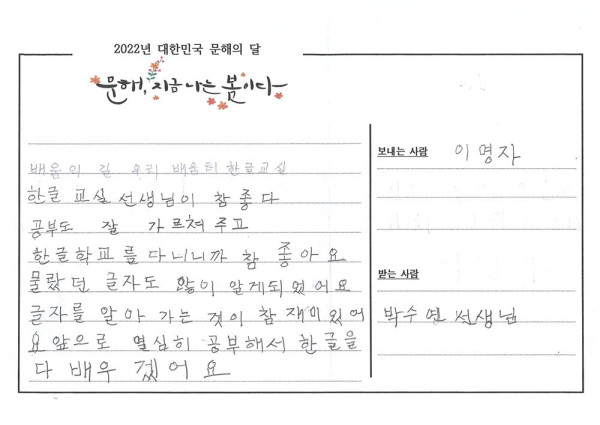 2022년 대한민국 문해의 달
문해, 지금 나는 봄이다
배움의 길 우리 배움터 한글교실
한글 교실 선생님이 참 좋다
공부도 잘 가르쳐 주고
한글학교를 다니니까 참 좋아요
물랐던 글자도 많이 알게되었어요
글자를 알아 가는 것이 참 재미있어
요 앞으로 열심히 공부해서 한글을
다 배우 겠어요
보내는 사람 이명자
받는 사람
박수연 선생님